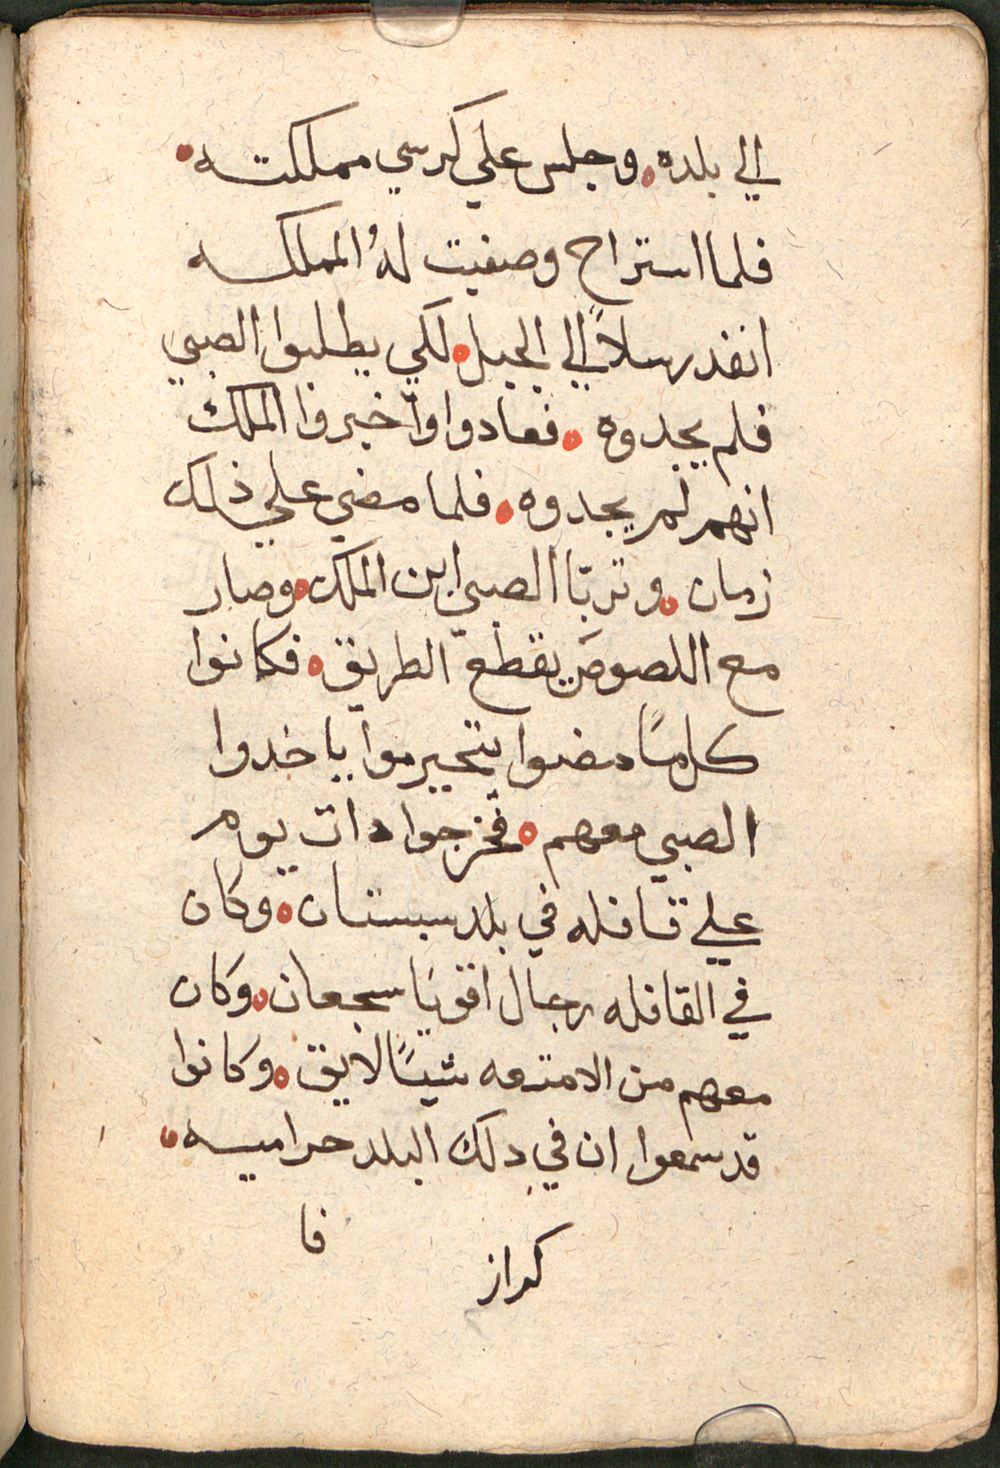 الي بلده ه وجلس علي كرسي مملكته ه
فلما استراح وصفيت لهُ المملكه
انفد رسلاً الي الجبل ه لكي يطلبوا الصبي
فلم يجدوه ه فعادوا وأخبروا الملك
انهم لم يجدوه ه فلما مضي علي ذلك
زمان ه وتربا الصبي ابن الملك ه وصار
مع اللصوص يقطع الطريق ه فكانوا
كل ما مضوا يتحيرموا ياخدوا
الصبي معهم ه فخرجوا دات يوم
علي قافله في بلد سبستان ه وكان
في القافله رجال اقويا سجعان ه وكان
معهم من الامتعه شياً لايق ه وكانوا
قد سمعوا ان في دلك البلد حراميه ه
فا
كراز